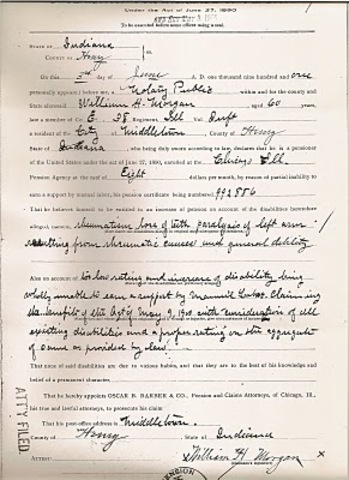 Under the Act of June 27, 1890
To be executed before some officer using a seal.
STATE OF Indiana
COUNTY OF Henry } ss:
On this 3rd day of June A. D. one thousand nine hundred and one
personally appeared before me, a Notary Public within and for the county and
State aforesaid William H. Morgan aged 60 years,
late a member of Co. E 38 Regiment, Ill Vol
a resident of the City of Middletown, County of Henry
State of Indiana, who being duly sworn according to law, declares that he is a pensioner
of the United States under the act of June 27, 1890, enrolled at the Chicago Ill.
Pension Agency at the rate of Eight dollars per month, by reason of partial inability to
earn a support by manual labor, his pension certificate being numbered 992886
That he believes himself to be entitled to an increase of pension on account of the disabilities heretofore
alleged, rheumatism loss of teeth paralysis of left arm
resulting from rheumatic causes and general debility
Also on account of too low rating and increase of disability being
wholly unable to earn a support by manual labor. Claiming
the benefits of the Act of May 9, 1900 with consideration of all
existing disabilities and a proper rating on the aggregate
of same as provided by law
That none of said disabilities are due to vicious habits, and that they are to the best of his knowledge and
belief of a permanent character.
That he hereby appoints OSCAR B. BARBER & CO., Pension and Claims Attorneys, of Chicago, Ill.,
his true and lawful attorneys, to prosecute his claim
That his post-office address is Middletown
County of Henry State of Indiana
ATTEST: William H Morgan X
ATTY FILED
PENSION